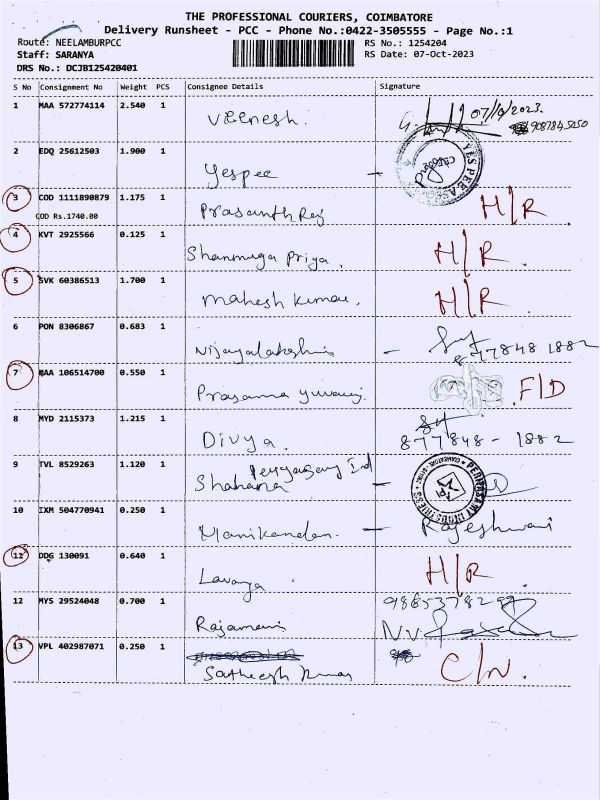 THE PROFESSIONAL COURIERS, COIMBATORE
Delivery Runsheet - PCC - Phone No.:0422-3505555 - Page No.:1
Route: NEELAMBURPCC RS No.: 1254204
Staff: SARANYA RS Date: 07-Oct-2023
DRS No.: DCJB125420401
S No Consignment No Weight PCS Consignee Details Signature
1 MAA 572774114 2.540 1 Veenesh. 07/10/2023.
2 EDQ 25612503 1.900 1 Yespee -
3 COD 1111890879 1.175 1 Prasanth Raj H/R
COD Rs.1740.00
4 KVT 2925566 0.125 1 Shanmuga Priya. H/R.
5 SVK 60386513 1.700 1 Mahesh Kumar. H/R.
6 PON 8306867 0.683 1 Vijayalakshmi -
877848 1882
7 MAA 106514700 0.550 1 Prasanna F/D
8 MYD 2115373 1.215 1 Divya. 877848 - 1882
9 TVL 8529263 1.120 1 Shahana
10 IXM 504770941 0.250 1 Manikandan. - Rajeshwari
11 DDG 130091 0.640 1 Lavanya H/R.
12 MYS 29524048 0.700 1 Rajamani
13 VPL 402987071 0.250 1 Satheesh Kumar C/N.